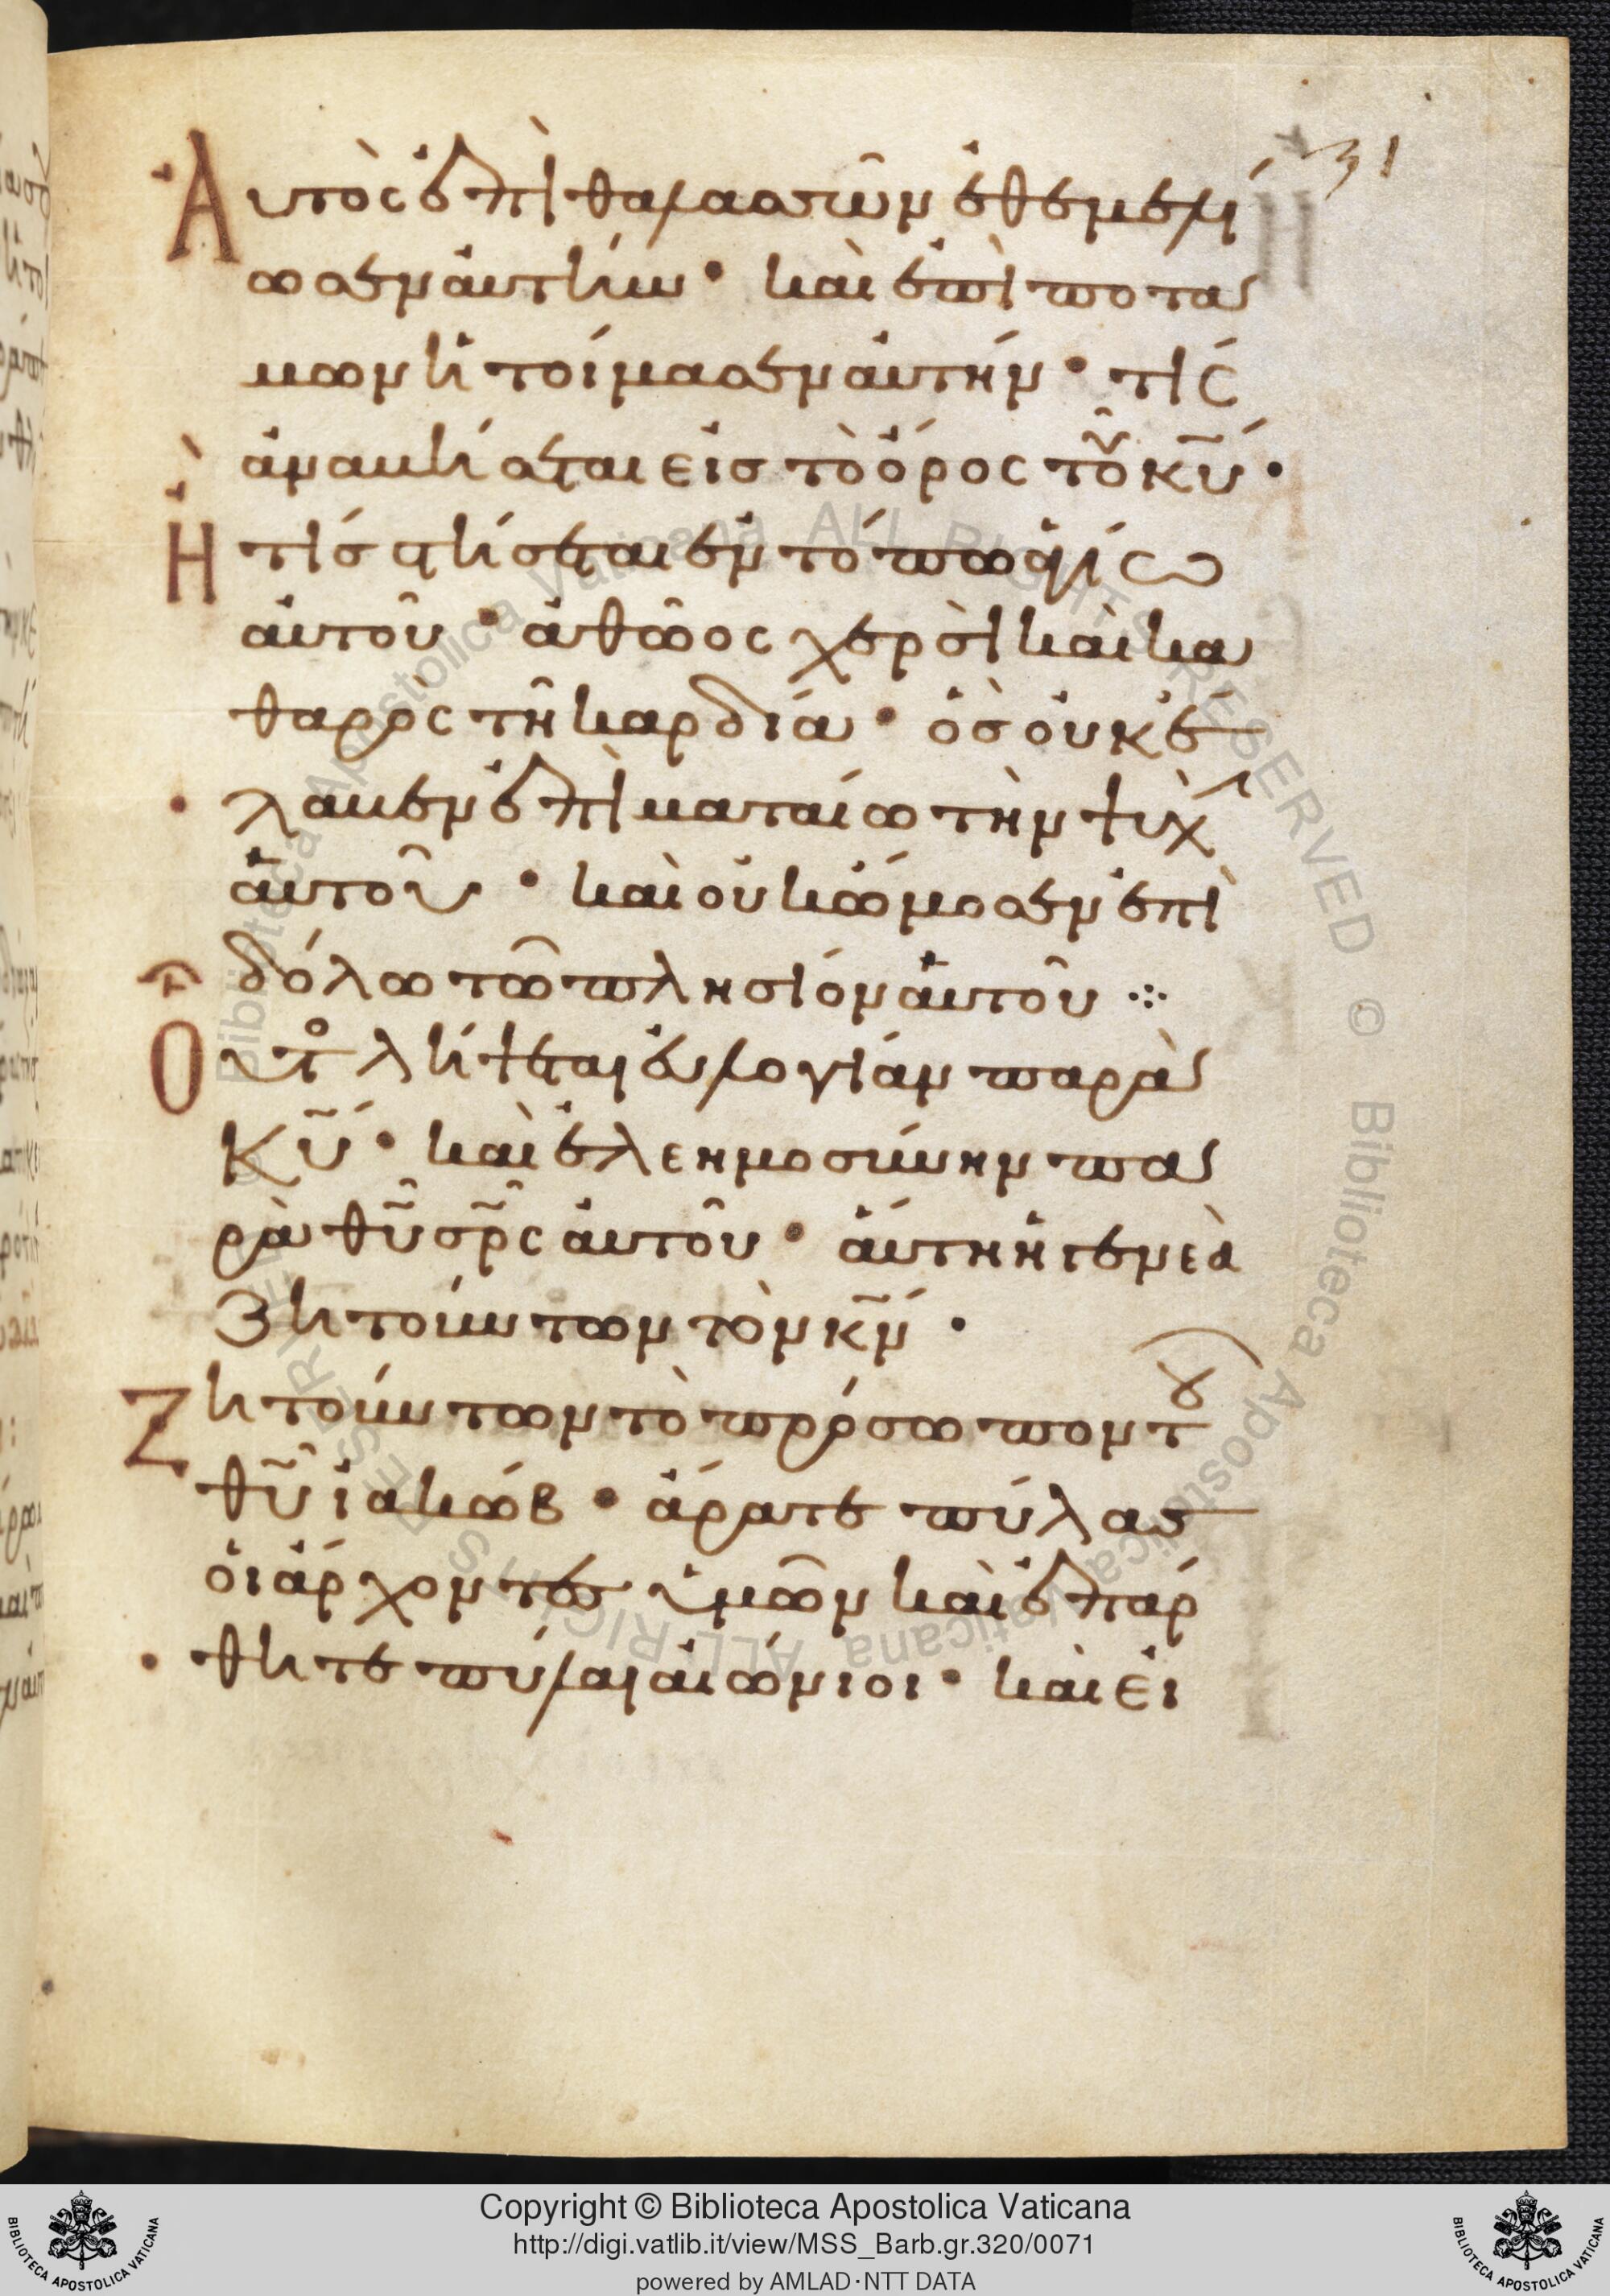 31
Αὐτὸς ἐπὶ θαλασσῶν ἐθεμελί
ωσεν αὐτήν · καὶ ἐπὶ ποτα
μων ἡτοίμασεν αὐτήν · τίς
ἀναβήσεται εἰς τὸ ὄρος τοῦ κ̅υ̅ ·
Ἢ τίς στήσεται ἐν τόπω ἁγίω
αὐτοῦ · ἀθῶος χερσὶ καὶ κα
θαρὸς τῆ καρδία · ὃς οὐκ ἔ
λαβεν ἐπὶ ματαίω τὴν ψυχὴ
αὐτοῦ · καὶ οὐκ ὤμοσεν ἐπὶ
δόλω τῶ πλησίον αὐτοῦ ·:·
Οὗτο λήψεται εὐλογίαν παρὰ
Κ̅υ̅ · καὶ ἐλεημοσύνην πα
ρὰ θ̅υ̅ σ̅ρ̅ς αὐτοῦ · αὕτη ἡ γενεὰ
ζητούντων τὸν κ̅ν̅ ·
Ζητούντων τὸ πρόσωπον τοῦ
θ̅υ̅ ἰακώβ · ἄρατε πύλας
οἱ ἄρχοντες ὑμῶν καὶ ἐπάρ
θητε πύλαι αἰώνιοι · καὶ εἰ
Copyright © Biblioteca Apostolica Vaticana
http://digi.vatlib.it/view/MSS_Barb.gr.320/0071
powered by AMLAD·NTT DATA
BIBLIOTECA APOSTOLICA VATICANA
BIBLIOTECA APOSTOLICA VATICANA